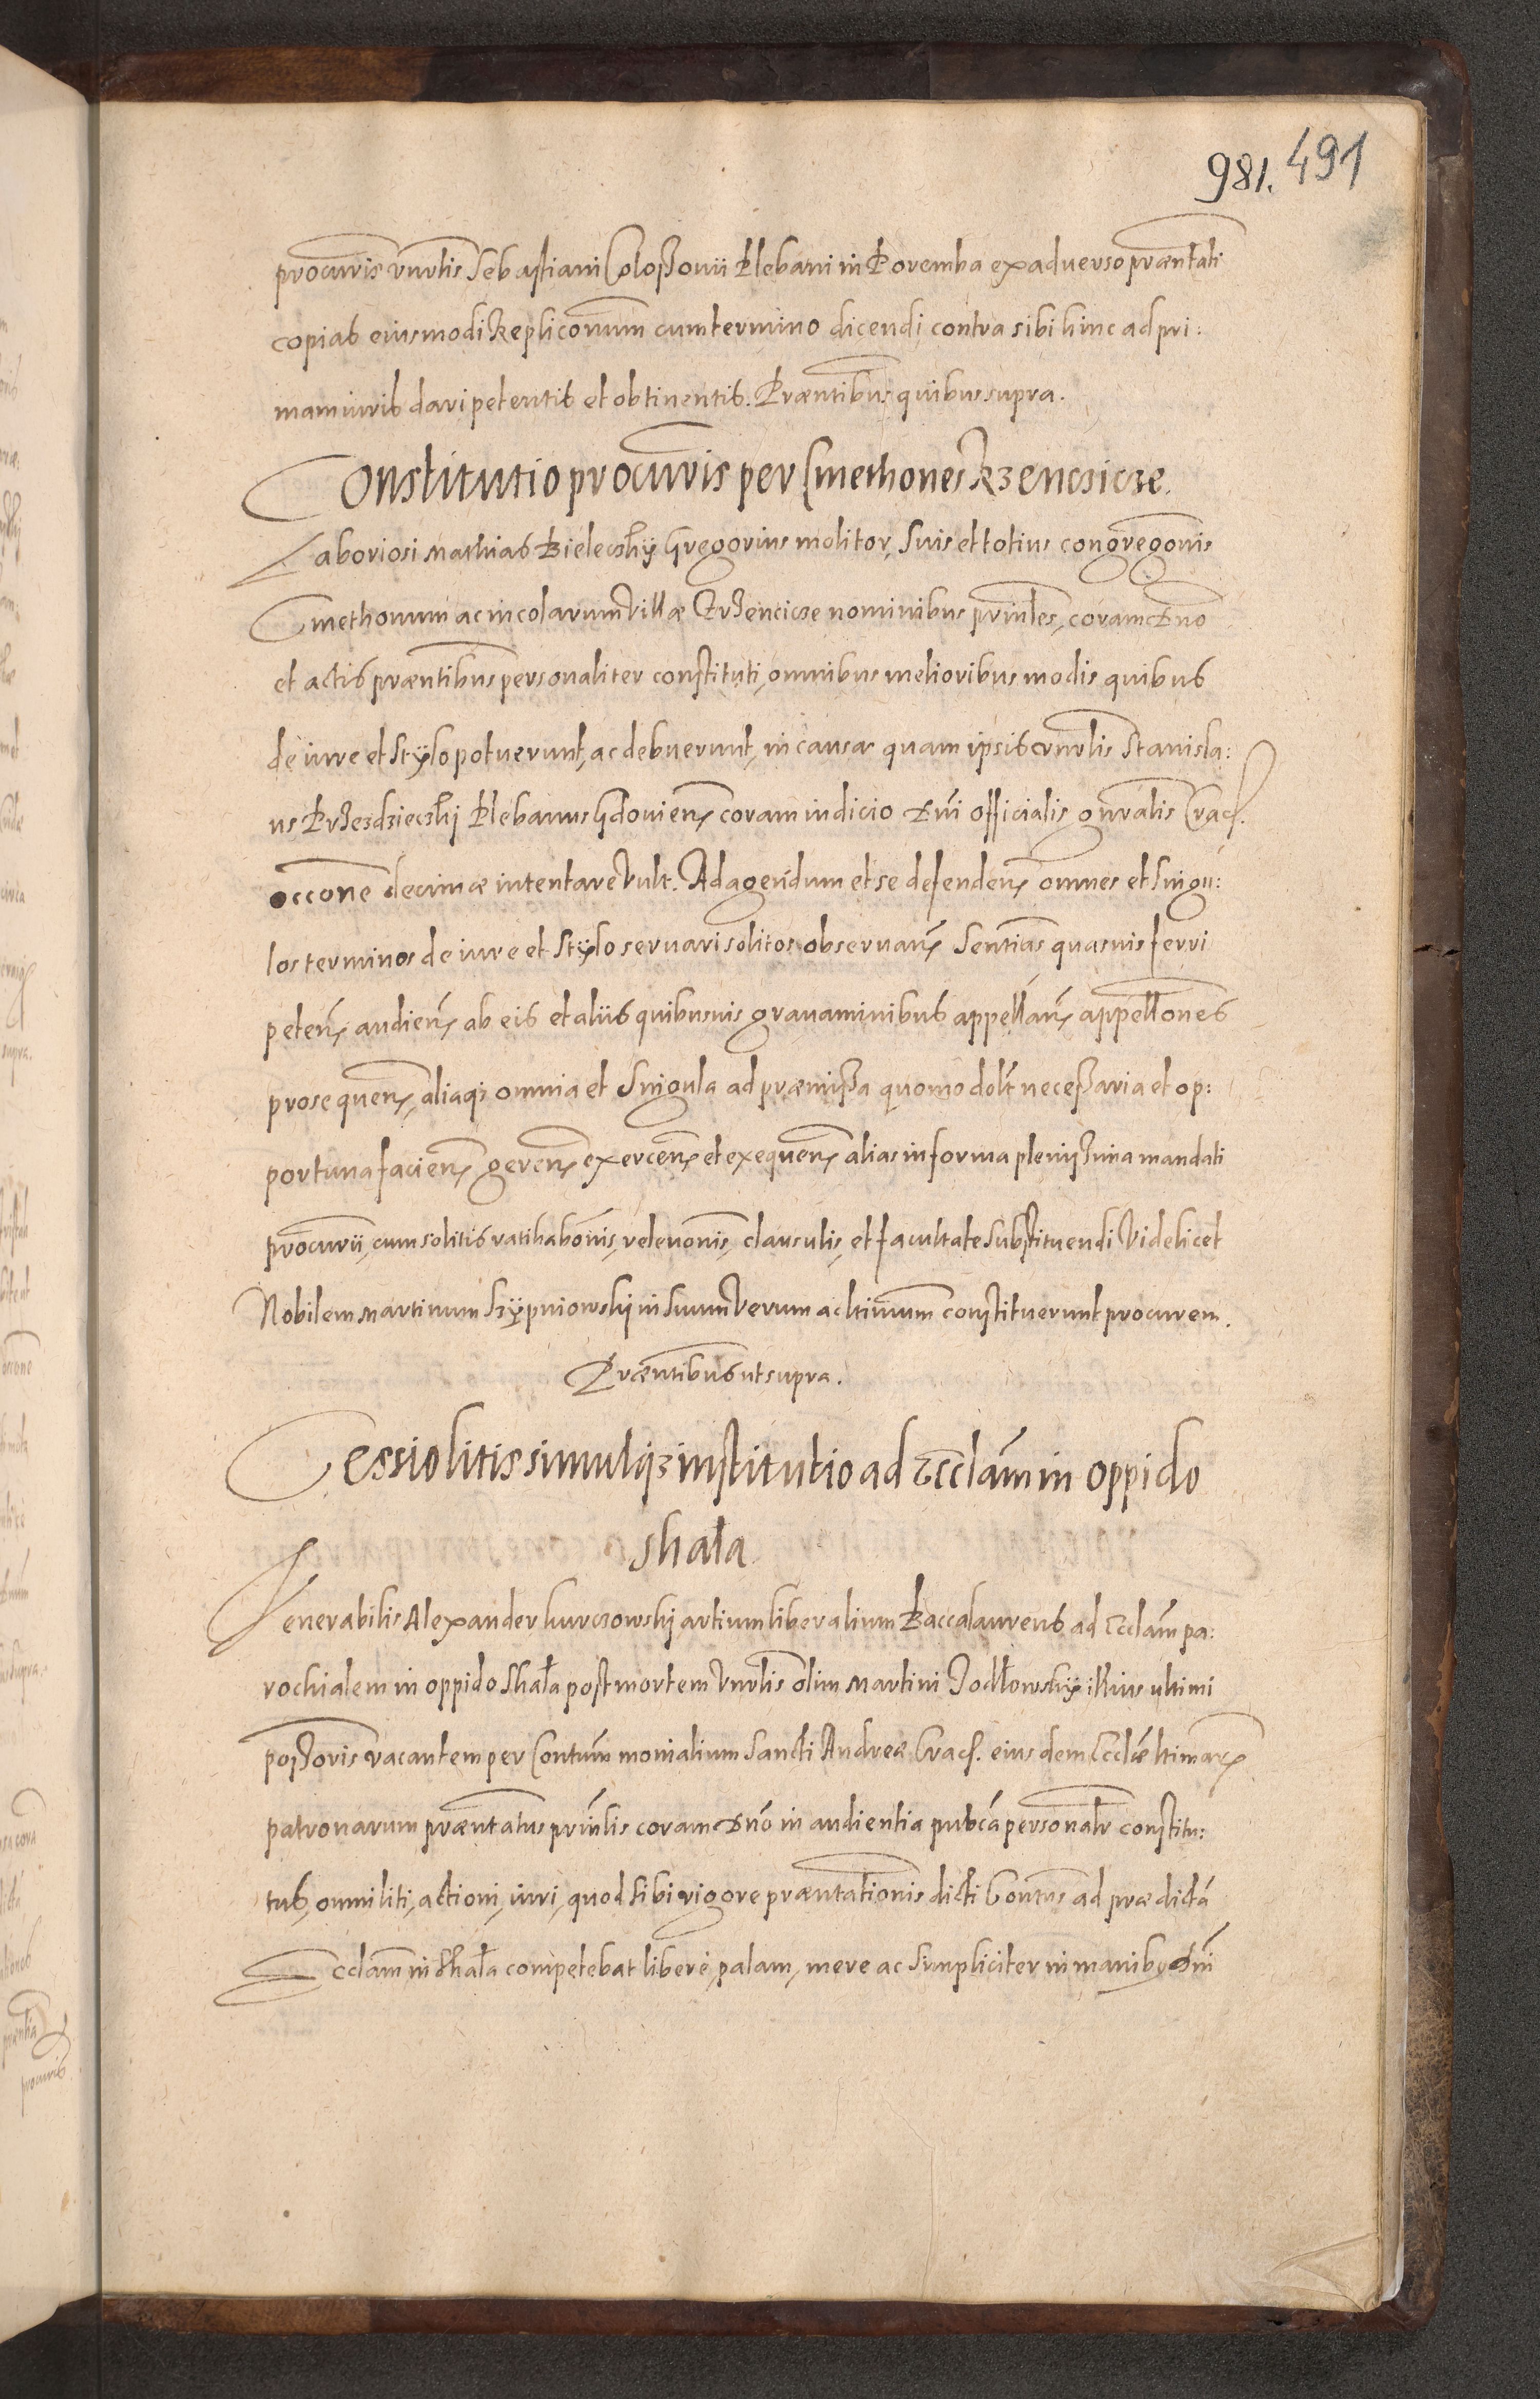 981. 491
procuris vnrlis Sebastiani Coloßouii Plebani in Poremba exaduerso præntati
copias eiusmodi Repliconum cum termino dicendi contra sibi hinc ad pri:
mam iuris dari petentis et obtinentis. Præntibus quibus supra.
Constitutio procuris per Cmethones Rzencsicze.
Laboriosi Mathias Bieleczkÿ Gregorius molitor, suis et totius congregonis
Cmethonum ac incolarum Villæ Rrzencicze nominibus prinles, coram Dno
et actis præntibus personaliter constituti, omnibus melioribus modis quibus
de iure et Stÿlo potuerunt, ac debuerunt, in causa quam ipsis vnrlis Stanisla:
us Przezdzieczkj Plebanus Gdouien coram iudicio Dni officialis gnralis Crac.
occone decimæ intentare Vult. Ad agendum et se defenden omnes et singu:
los terminos de iure et Stÿlo seruari solitos obseruan Sentias quasuis ferri
peten audien ab eis et aliis quibusuis grauaminibus appellan appellones
prosequen, aliaq3 omnia et Singula ad præmißa quomodolt neceßaria et op:
portuna facien geren exercen et exequen alias in forma plenißima mandati
procurii, cum solitis ratihabonis, releuonis, clausulis, et facultate substituendi Videlicet
Nobilem Martinum Szÿpniowskj in suum Verum ac ltimum constituerunt procurem.
Præntibus ut supra.
Cessio litis simulq3 institutio ad Ecclam in oppido
Skała
Venerabilis Alexander kurczowskj artium liberalium Baccalaureus ad Ecclam pa:
rochialem in oppido Skała post mortem Vnrlis olim Martini Jodłowskÿ illius ultimi
poßoris vacantem per Contum monialium Sancti Andreæ Crac. eiusdem Ecclæ ltimar
patronarum præntatus prinlis coram Dno in audientia pubca personalr constitu:
tus, omni liti, actioni, iuri, quod sibi vigore præntationis dicti Contus ad prædicta
Ecclam in Skała competebat libere, palam, mere ac simpliciter in manibus Dni